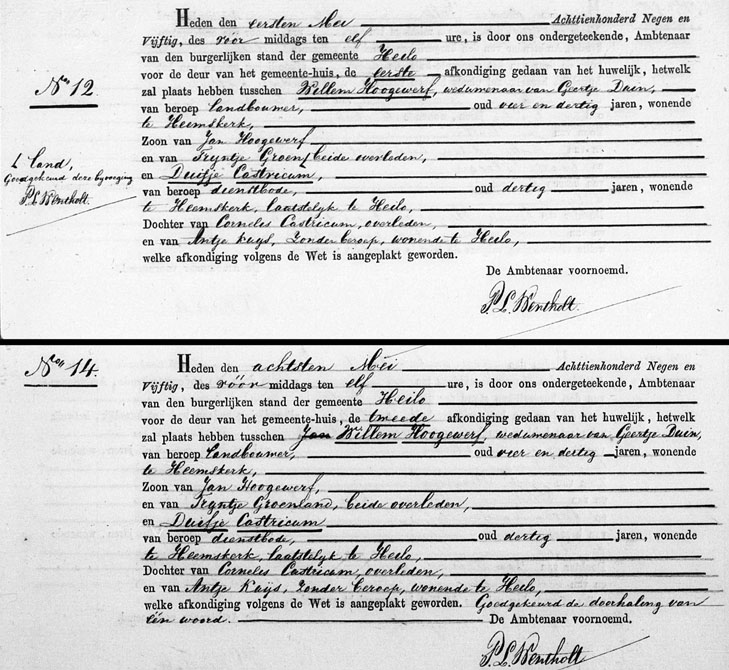 Heden den eersten Mei Achttienhonderd Negen en
Vijftig, des vóór middags ten elf ure, is door ons ondergeteekende, Ambtenaar
van den burgerlijken stand der gemeente Heilo
voor de deur van het gemeente-huis, de eerste afkondiging gedaan van het huwelijk, hetwelk
Nro 12
zal plaats hebben tusschen Willem Hoogewerf, weduwenaar van Geertje Duin,
van beroep landbouwer, oud vier en dertig jaren, wonende
te Heemskerk,
Zoon van Jan Hoogewerf
en van Tryntje Groen⌈ beide overleden,
⌈ land,
Goedgekeurd deze byvoeging
P. L. Bentholt
en Duifje Castricum,
van beroep dienstbode, oud dertig jaren, wonende
te Heemskerk, laatstelyk te Heilo,
Dochter van Cornelis Castricum, overleden,
en van Antje Kuys, zonder beroep, wonende te Heilo,
welke afkondiging volgens de Wet is aangeplakt geworden.
De Ambtenaar voornoemd.
P. L. Bentholt
Nro 14.
Heden den achtsten Mei Achttienhonderd Negen en
Vijftig, des vóór middags ten elf ure, is door ons ondergeteekende, Ambtenaar
van den burgerlijken stand der gemeente Heilo
voor de deur van het gemeente-huis, de tweede afkondiging gedaan van het huwelijk, hetwelk
zal plaats hebben tusschen Jan Willem Hoogewerf, weduwenaar van Geertje Duin,
van beroep landbouwer, oud vier en dertig jaren, wonende
te Heemskerk,
Zoon van Jan Hoogewerf,
en van Tryntje Groenland, beide overleden,
en Duifje Castricum
van beroep dienstbode, oud dertig jaren, wonende
te Heemskerk, laatstelyk te Heilo,
Dochter van Cornelis Castricum, overleden,
en van Antje Kuijs, zonder beroep, wonende te Heilo,
welke afkondiging volgens de Wet is aangeplakt geworden. Goedgekeurd de doorhaling van
één woord. De Ambtenaar voornoemd.
P. L. Bentholt